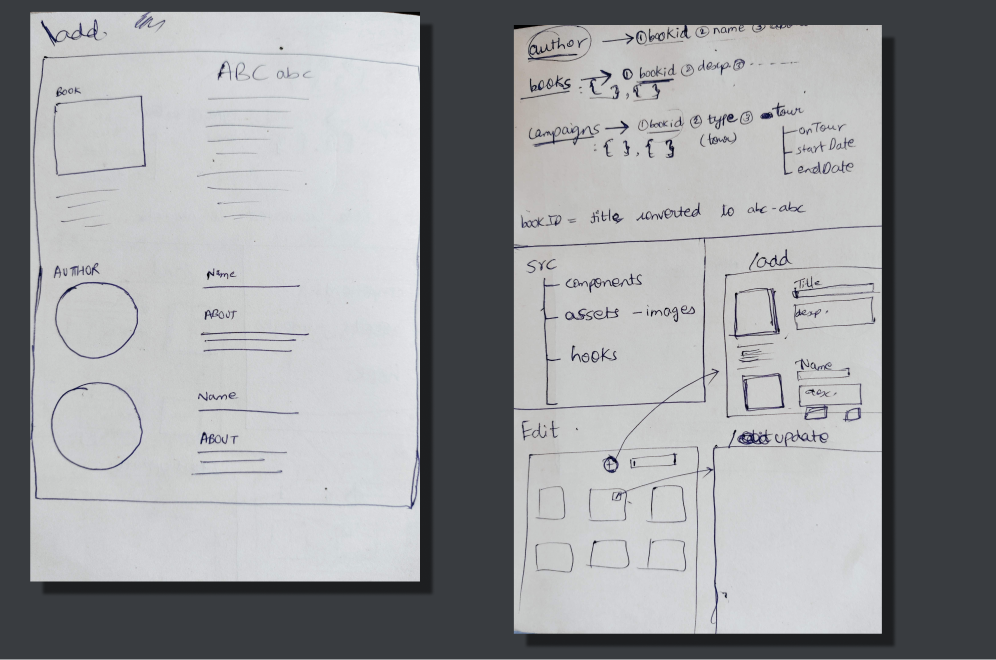 \add.
ABC abc
BOOK
AUTHOR
Name
ABOUT
Name
ABOUT
author → ① bookid ② name ③
books → ① bookid ② desp ③ ------
: { }, { }
campaigns → ① bookid ② type ③ tour
: { }, { } (tour)
onTour
startDate
endDate
bookID = title converted to abc-abc
src
components
assets - images
hooks
/add
Title
desp.
Name
Edit .
+
/ update